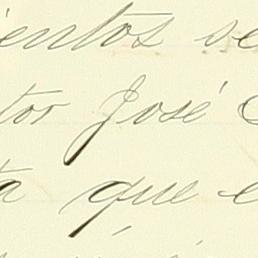 ientos se
tor José
ta que e